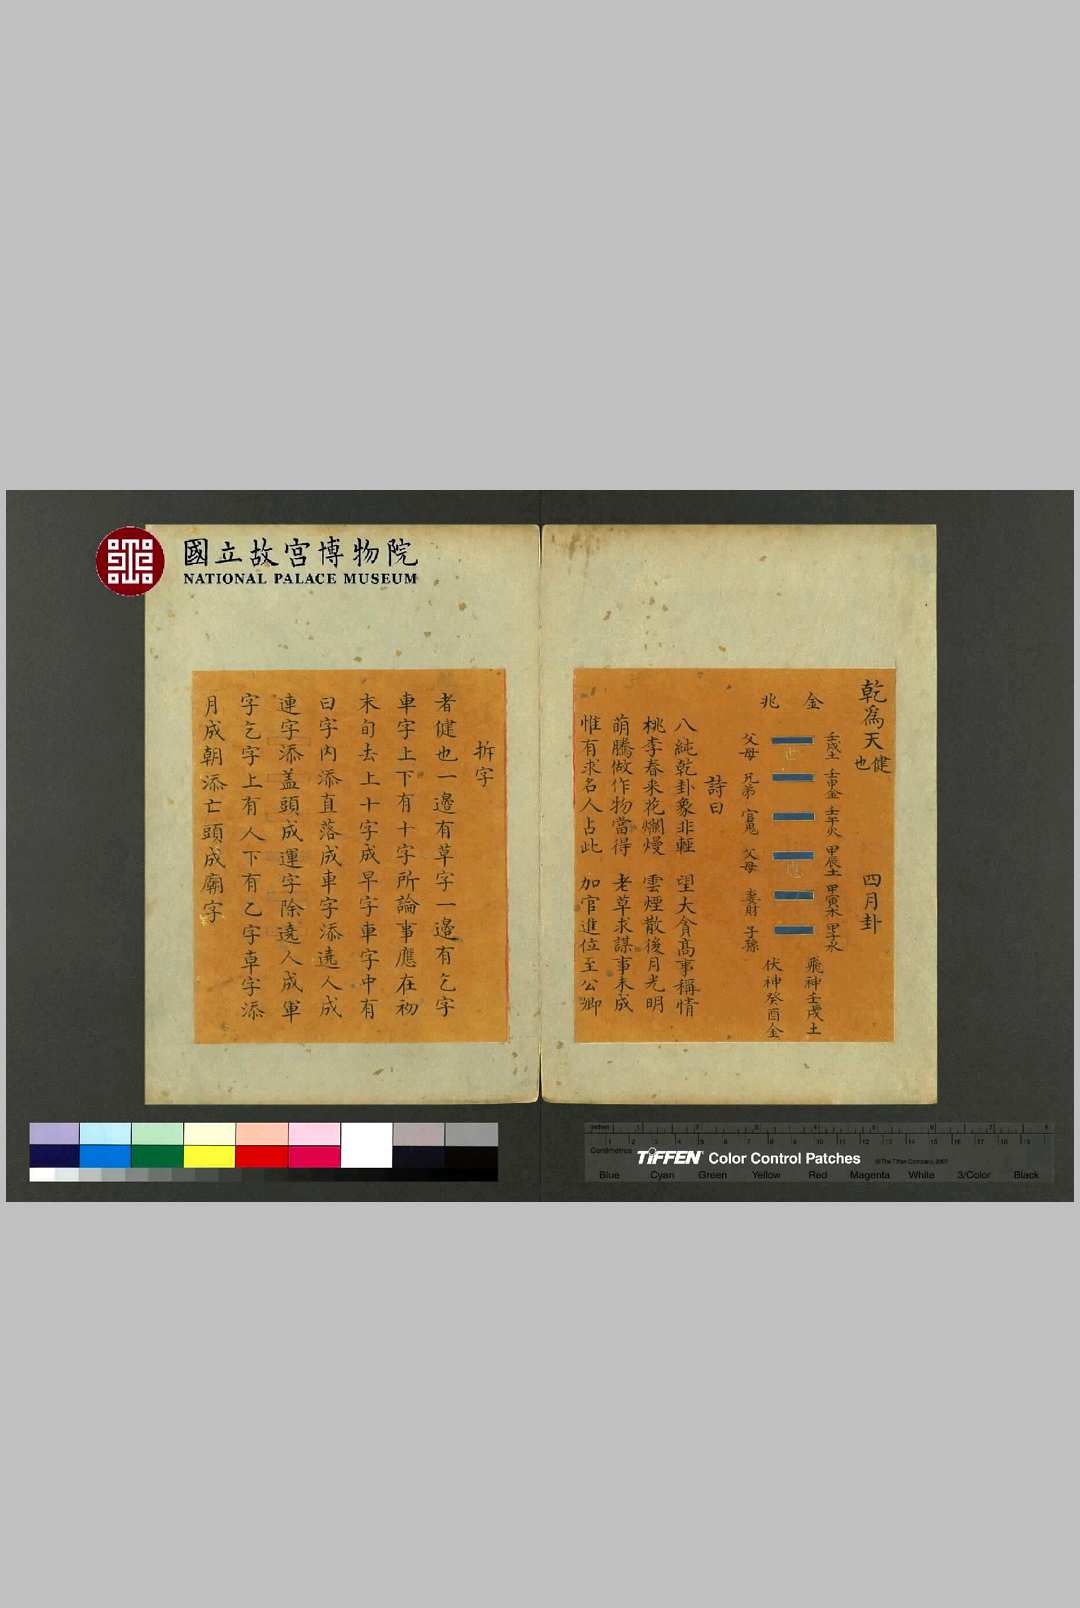 國立故宮博物院
NATIONAL PALACE MUSEUM
乾為天健也 四月卦
壬戌土 壬申金 壬午火 甲辰土 甲寅木 甲子水 飛神壬戌土
金
兆
世
父母 兄弟 官鬼 父母 妻財 子孫 伏神癸酉金
詩曰
八純乾卦象非輕 望大貪高事稱情
桃李春來花爛熳 雲煙散後月光明
萌騰做作物當得 老草求謀事未成
惟有求名人占此 加官進位至公卿
拆字
者健也一邉有草字一邉有乞字
車字上下有十字所論事應在初
末旬去上十字成早字車字中有
曰字內添直落成車字添遶人成
連字添盖頭成運字除遶人成軍
字乞字上有人下有乙字車字添
月成朝添亡頭成廟字
Inches
Centimetres
TIFFEN Color Control Patches
© The Tiffen Company, 2007
Blue Cyan Green Yellow Red Magenta White 3/Color Black